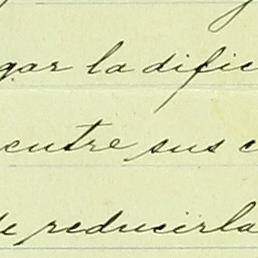 gar la dific
entre sus c
de reducirla